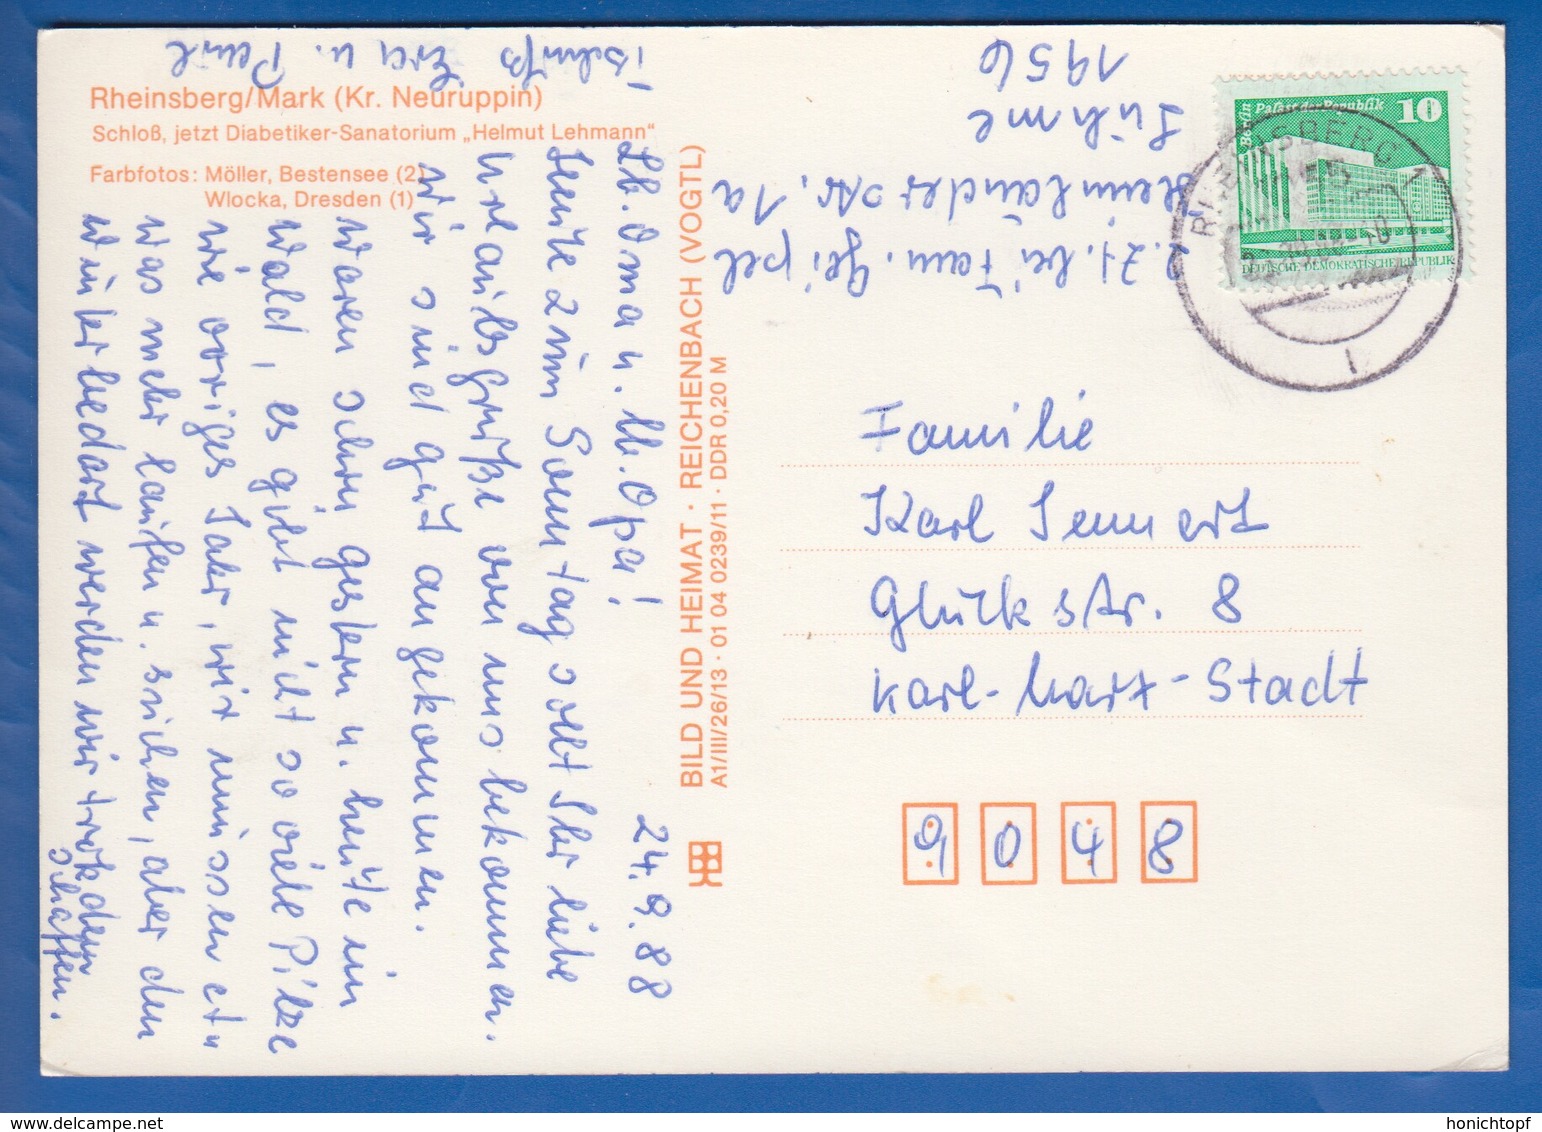 Rheinsberg/Mark (Kr. Neuruppin)
Schloß, jetzt Diabetiker-Sanatorium „Helmut Lehmann“
Farbfotos: Möller, Bestensee (2)
Wlocka, Dresden (1)
24.9.88
Lb. Oma u. lb. Opa!
Heute zum Sonntag sollt Ihr liebe
Urlaubsgrüße von uns bekommen.
Wir sind gut angekommen.
Waren schon gestern u. heute im
Wald, es gibt nicht so viele Pilze
wie voriges Jahr, wir müssen etw
was mehr laufen u. suchen, aber den
Winterbedarf werden wir trotzdem
schaffen.
Tschüß Eva u. Paul
BILD UND HEIMAT · REICHENBACH (VOGTL)
A1/III/26/13 · 01 04 0239/11 · DDR 0,20 M
z.Zt. bei Fam. Geipel
Str. 1a
Lühme
1956
Berlin Palast der Republik
10
DEUTSCHE DEMOKRATISCHE REPUBLIK
RHEINSBERG 1
1955
Familie
Karl Sennert
Glückstr. 8
Karl-Marx-Stadt
9048
www.delcampe.net
honichtopf